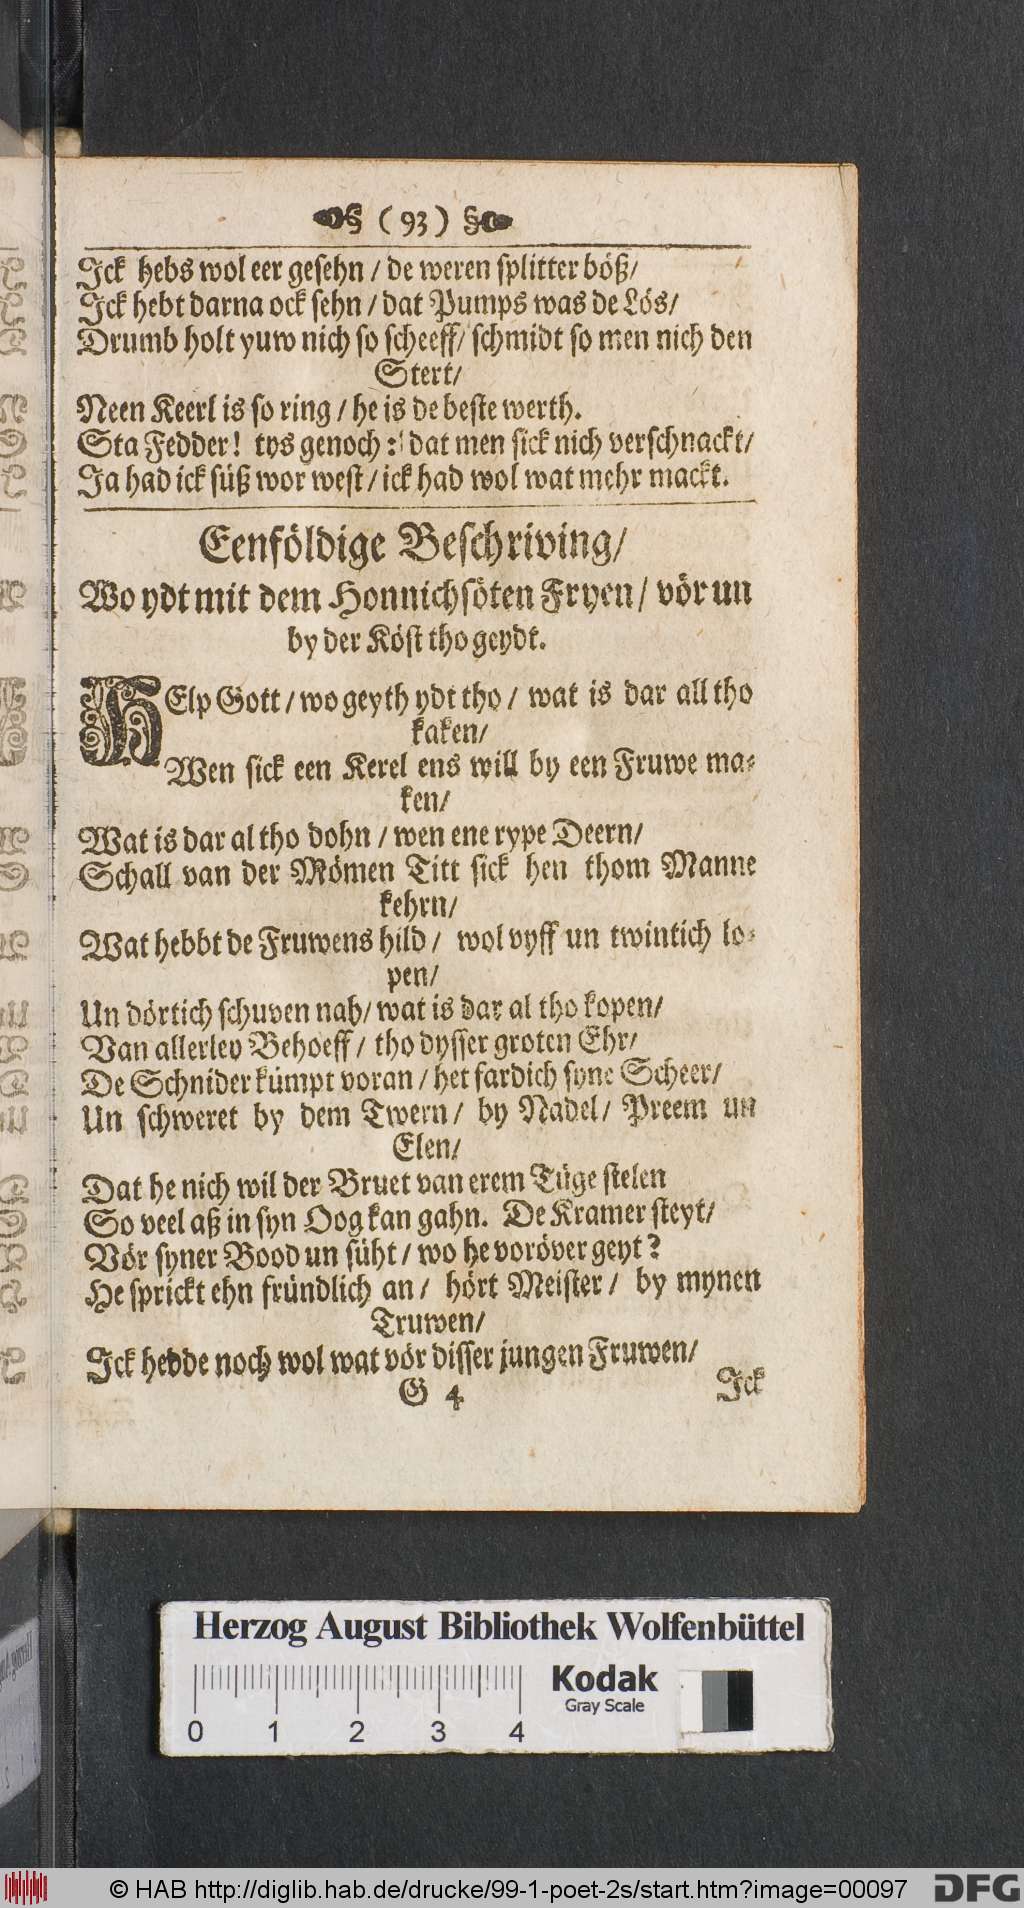 ( 93 )
Ick hebs wol eer gesehn / de weren splitter böß/
Ick hebt darna ock sehn / dat Pumps was de Lös/
Drumb holt yuw nich so scheeff/ schmidt so men nich den
Stert/
Neen Keerl is so ring / he is de beste werth.
Sta Fedder! tys genoch : dat men sick nich verschnackt/
Ja had ick süß wor west / ick had wol wat mehr mackt.
Eenföldige Beschriving/
Wo ydt mit dem Honnichsöten Fryen/ vör un
by der Köst tho geydt.
HElp Gott / wo geyth ydt tho / wat is dar all tho
kaken/
Wen sick een Kerel ens will by een Fruwe ma-
ken/
Wat is dar al tho dohn / wen ene rype Deern/
Schall van der Mömen Titt sick hen thom Manne
kehrn/
Wat hebbt de Fruwens hild / wol vyff un twintich lo-
pen/
Un dörtich schuven nah/ wat is dar al tho kopen/
Van allerley Behoeff / tho dysser groten Ehr/
De Schnider kümpt voran / het fardich syne Scheer/
Un schweret by dem Twern / by Nadel/ Preem un
Elen/
Dat he nich wil der Bruet van erem Tüge stelen
So veel aß in syn Oog kan gahn. De Kramer steyt/
Vör syner Bood un süht / wo he voröver geyt?
He sprickt ehn fründlich an / hört Meister / by mynen
Truwen/
Ick hedde noch wol wat vör disser jungen Fruwen/
G 4
Ick
Herzog August Bibliothek Wolfenbüttel
Kodak
Gray Scale
0 1 2 3 4
© HAB http://diglib.hab.de/drucke/99-1-poet-2s/start.htm?image=00097
DFG